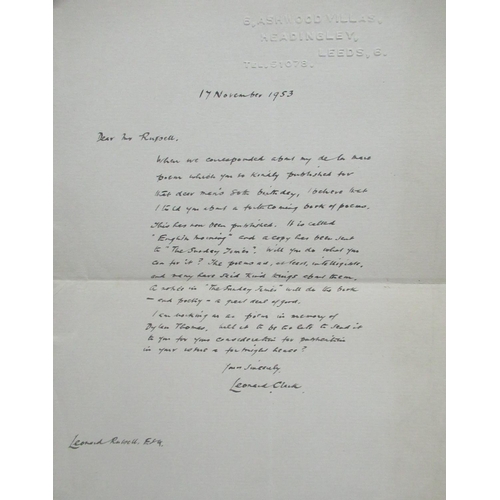 6, ASHWOOD VILLAS,
HEADINGLEY,
LEEDS, 6.
TEL. 51078.
17 November 1953
Dear Mr Russell,
When we corresponded about my de la mare
poem which you so kindly published for
that dear man's 80th birthday, I believe that
I told you about a forthcoming book of poems.
This has now been published. It is called
"English Morning" and a copy has been sent
to "The Sunday Times". Will you do what you
can for it? The poems are, at least, intelligible,
and many have said kind things about them.
A notice in "The Sunday Times" will do the book
- and poetry - a great deal of good.
I am working on a poem in memory of
Dylan Thomas. Will it be too late to send it
to you for your consideration for publication
in your a fortnight hence?
Yours sincerely
Leonard Clark
Leonard Russell Esq.